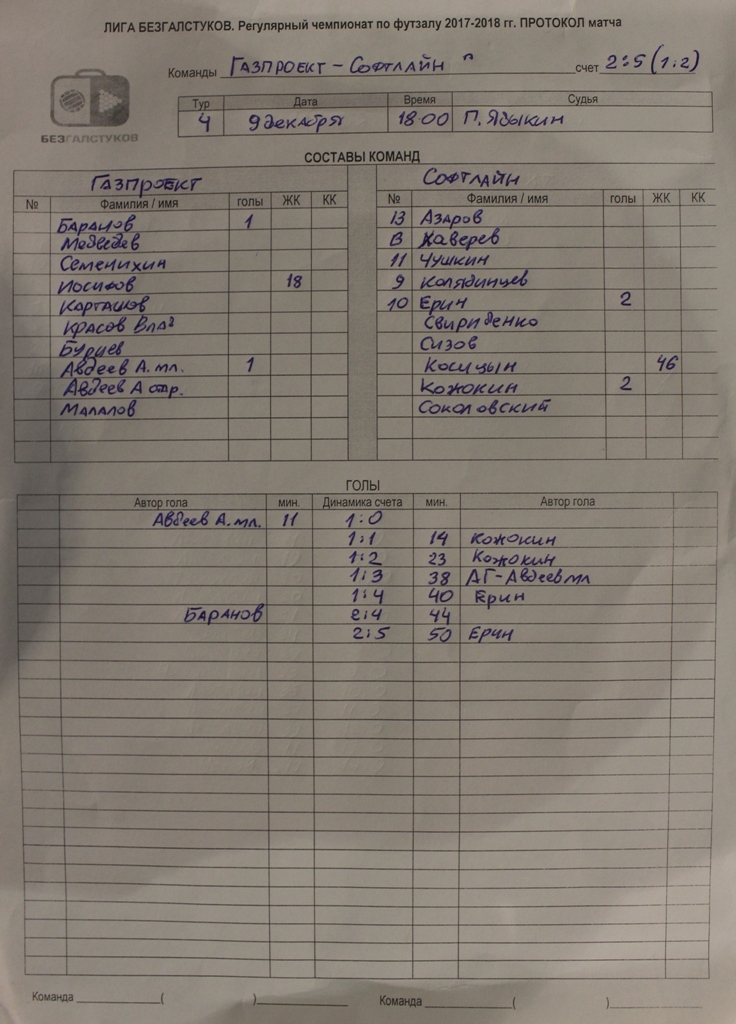 ЛИГА БЕЗГАЛСТУКОВ. Регулярный чемпионат по футзалу 2017-2018 гг. ПРОТОКОЛ матча
Команды Газпроект - Софтлайн счет 2:5 (1:2)
БЕЗГАЛСТУКОВ
Тур Дата Время Судья
4 9 декабря 18 00 П. Языкин
СОСТАВЫ КОМАНД
Газпроект Софтлайн
№ Фамилия / имя голы ЖК КК № Фамилия / имя голы ЖК КК
Баранов 1 13 Азаров
Медведев Каверев
Семенихин 11 Чушкин
Иосифов 18 9 Колядинцев
Карташов 10 Ерин 2
Красов Влад Свириденко
Бурцев Сизов
Авдеев А. мл. 1 Косицын 46
Авдеев А стар. Кожокин 2
Малалов Соколовский
ГОЛЫ
Автор гола мин. Динамика счета мин. Автор гола
Авдеев А. мл. 11 1:0
1:1 14 Кожокин
1:2 23 Кожокин
1:3 38 АГ-Авдеев мл
1:4 40 Ерин
Баранов 2:4 44
2:5 50 Ерин
Команда ____________( )____________ Команда ____________( )____________